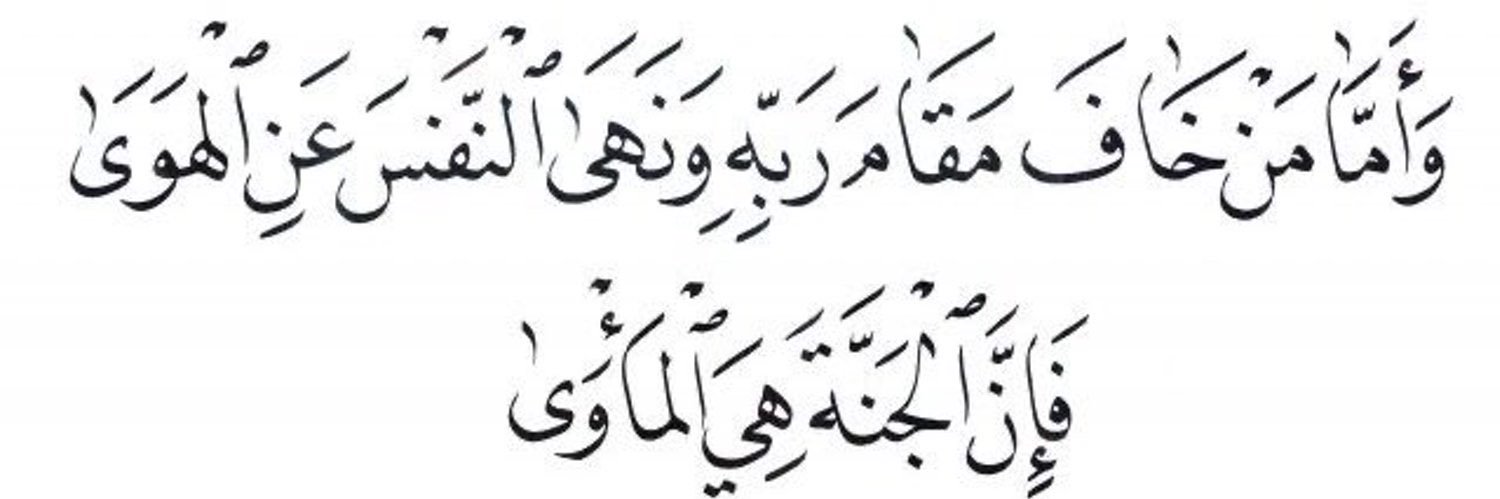 وَأَمَّا مَنْ خَافَ مَقَامَ رَبِّهِ وَنَهَى ٱلنَّفْسَ عَنِ ٱلْهَوَىٰ
فَإِنَّ ٱلْجَنَّةَ هِيَ ٱلْمَأْوَىٰ